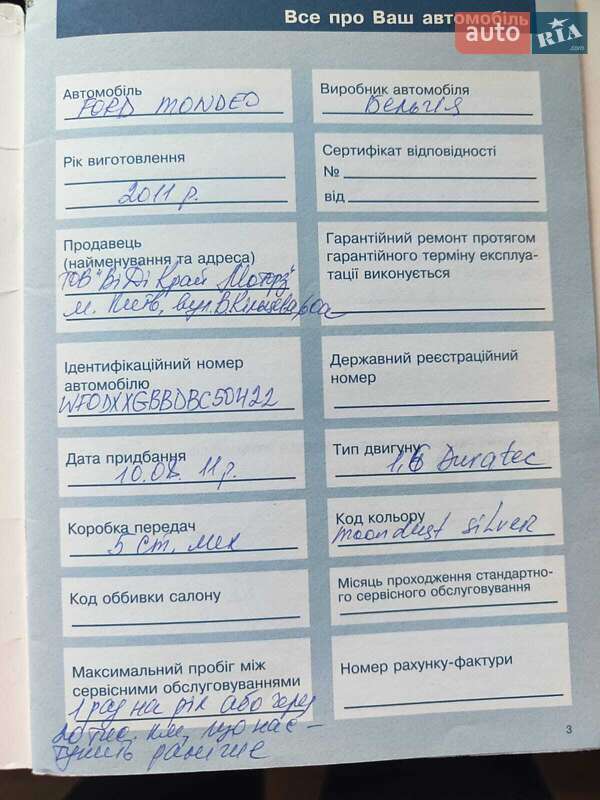 Все про Ваш автомобіль
auto RIA .com
Автомобіль
FORD MONDEO
Виробник автомобіля
Бельгія
Рік виготовлення
2011 р.
Сертифікат відповідності
№
від
Продавець
(найменування та адреса)
ТОВ "ВіДі Край Моторз"
м. Київ, вул. В. Кільцева, 60а
Гарантійний ремонт протягом
гарантійного терміну експлуа-
тації виконується
Ідентифікаційний номер
автомобілю
WF0DXXGBBDBC50422
Державний реєстраційний
номер
Дата придбання
11 р.
Тип двигуну
1,6 Duratec
Коробка передач
5 ст. мех
Код кольору
moondust silver
Код оббивки салону
Місяць проходження стандартно-
го сервісного обслуговування
Максимальний пробіг між
сервісними обслуговуваннями
1 раз на рік або через
20 тис. км, що нас-
тупить раніше
Номер рахунку-фактури
3